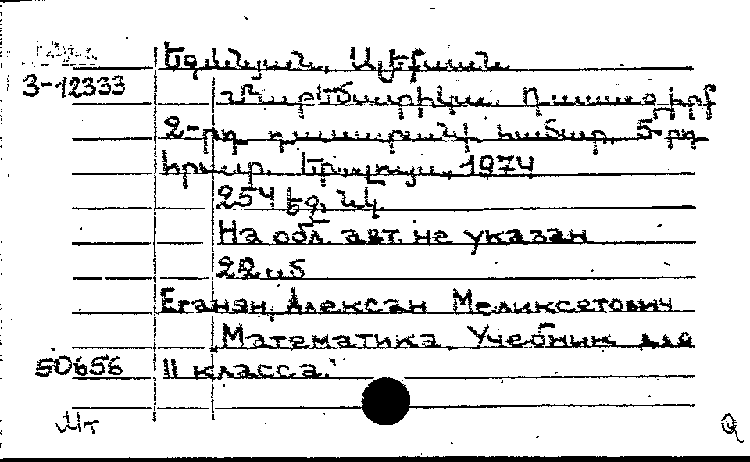 Եգանյան, Ալեքսան
3-12333
Մաթեմատիկա. Դասագիրք
2-րդ դասարանի համար. 5-րդ
հրատ. Եր., Լույս, 1974
254 էջ, նկ.
На обл. авт. не указан
22 и 5
Еганян, Алексан Меликсетович
Математика. Учебник для
50656 II класса.
Мт